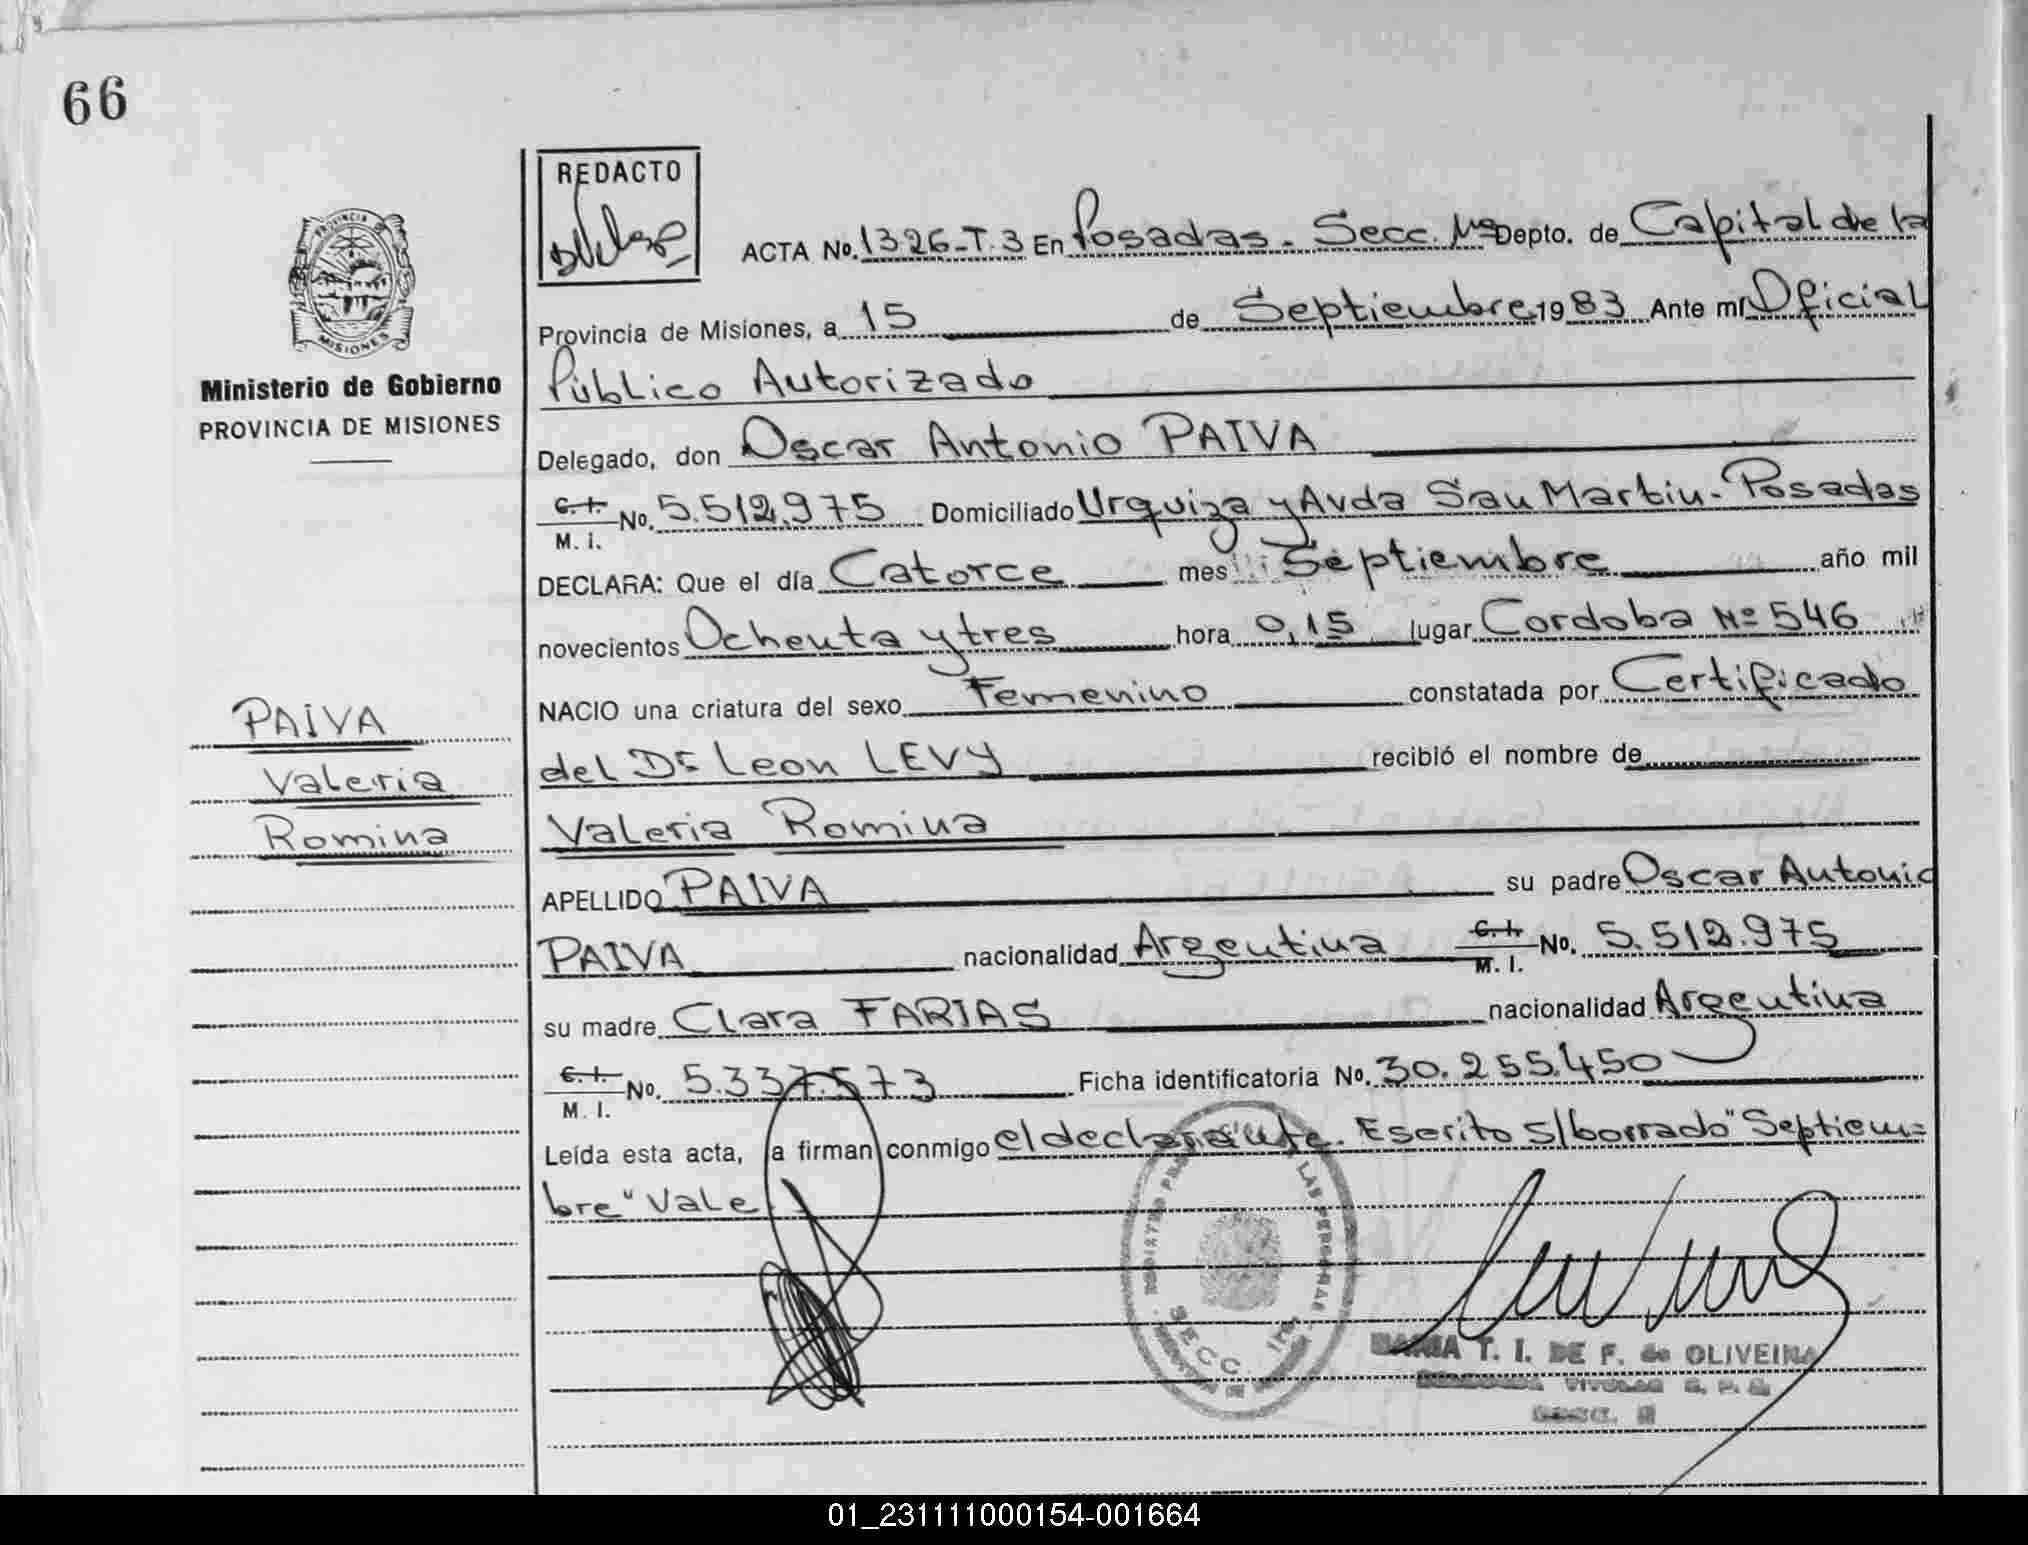 66
REDACTO
ACTA No. 1326-T.3 En Posadas - Secc. 1ra Depto. de Capital de la
Provincia de Misiones, a 15 de Septiembre 1983 Ante mí Oficial
Público Autorizado
Delegado, don Oscar Antonio PAIVA
C.I. No. 5.512.975 Domiciliado Urquiza y Avda San Martin - Posadas
M. I.
DECLARA: Que el día Catorce mes Septiembre año mil
novecientos Ochenta y tres hora 0,15 lugar Cordoba Nº 546
NACIO una criatura del sexo Femenino constatada por Certificado
del Dr Leon LEVY recibió el nombre de
Valeria Romina
APELLIDO PAIVA su padre Oscar Antonio
PAIVA nacionalidad Argentina C.I. No. 5.512.975
M. I.
su madre Clara FARIAS nacionalidad Argentina
C.I. No. 5.337.573 Ficha identificatoria No. 30.255.450
M. I.
Leída esta acta, la firman conmigo el declarante. Escrito s/borrado "Septiem-
bre" Vale
PROVINCIA
MISIONES
Ministerio de Gobierno
PROVINCIA DE MISIONES
PAIVA
Valeria
Romina
LAS PERSONAS
SECC.
MARIA T. I. DE F. de OLIVEIRA
01_231111000154-001664